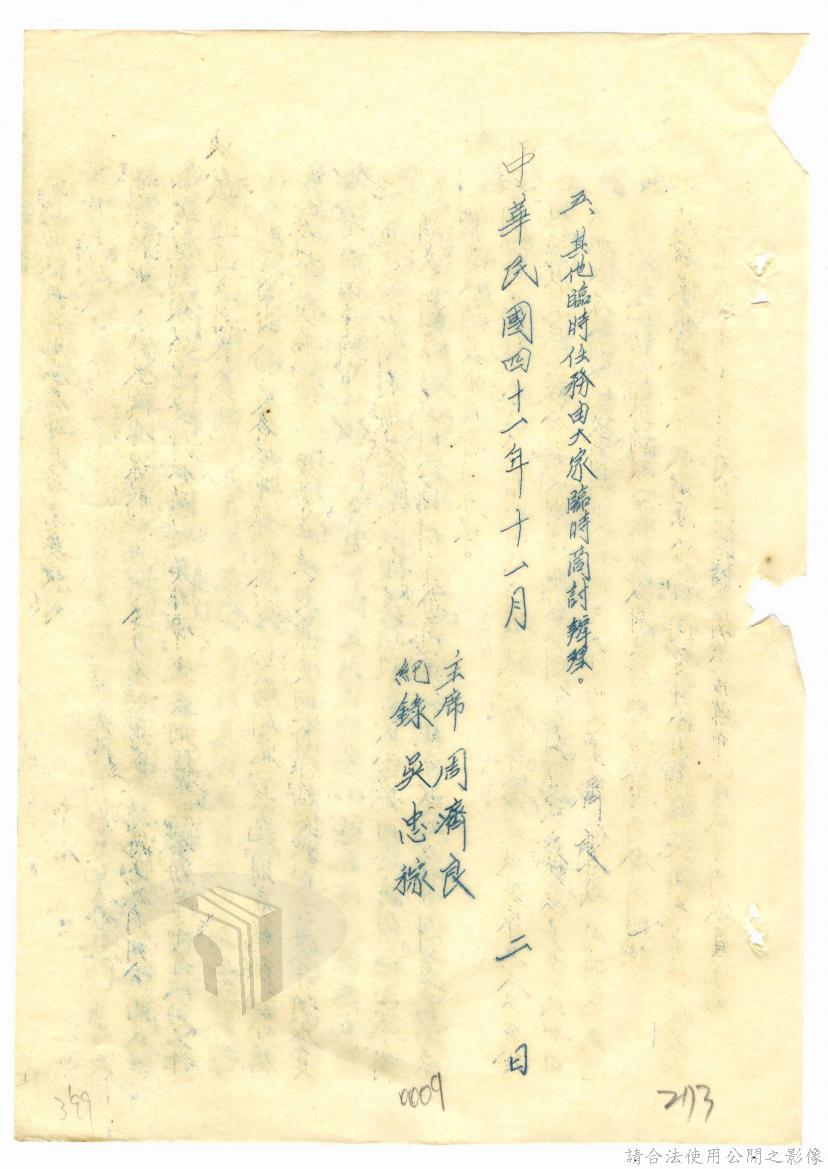 五、其他臨時任務由大家臨時商討辦理。
中華民國四十一年十一月 二 日
主席 周濟良
紀錄 吳忠稼
399
0009
2113
請合法使用公開之影像